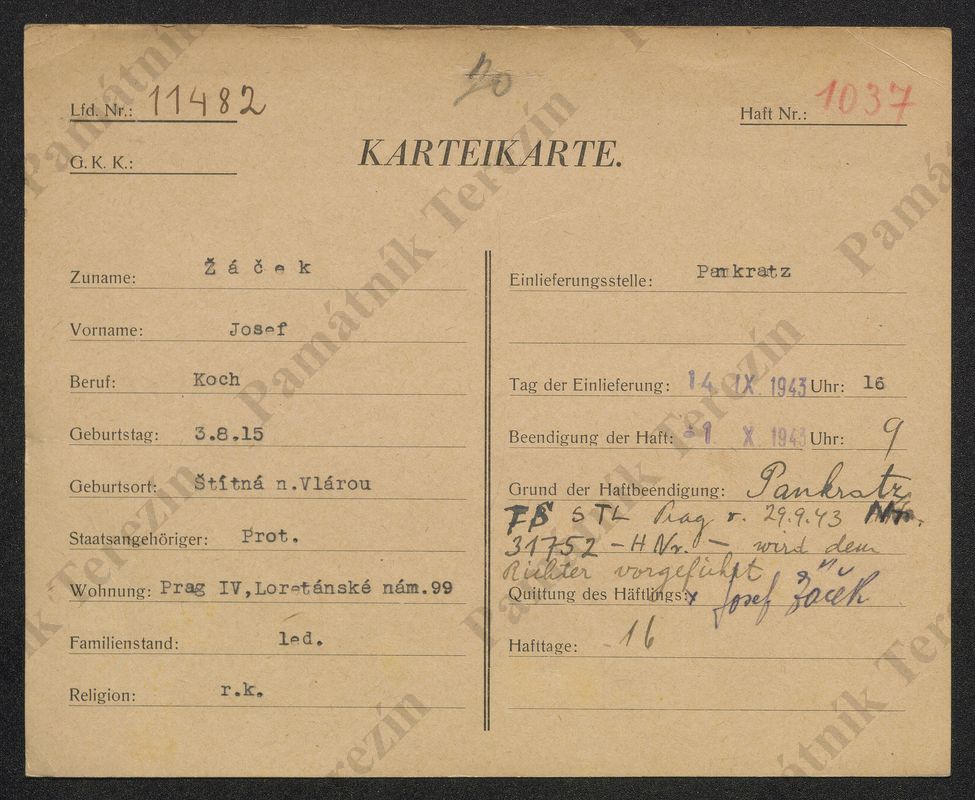 20
Lfd. Nr.: 11482
Haft Nr.: 1037
G. K. K.:
KARTEIKARTE.
Zuname: Žáček
Vorname: Josef
Beruf: Koch
Geburtstag: 3.8.15
Geburtsort: Štítná n.Vlárou
Staatsangehöriger: Prot.
Wohnung: Prag IV, Loretánské nám.99
Familienstand: led.
Religion: r.k.
Einlieferungsstelle: Pankratz
Tag der Einlieferung: 14 IX. 1943 Uhr: 16
Beendigung der Haft: -1 X 1943 Uhr: 9
Grund der Haftbeendigung: Pankratz
STL Prag v. 29.9.43 Nr.
31752 - H Nr. - wird dem
Richter vorgeführt
Quittung des Häftlings: x Josef Žáček
Hafttage: 16
Památník Terezín